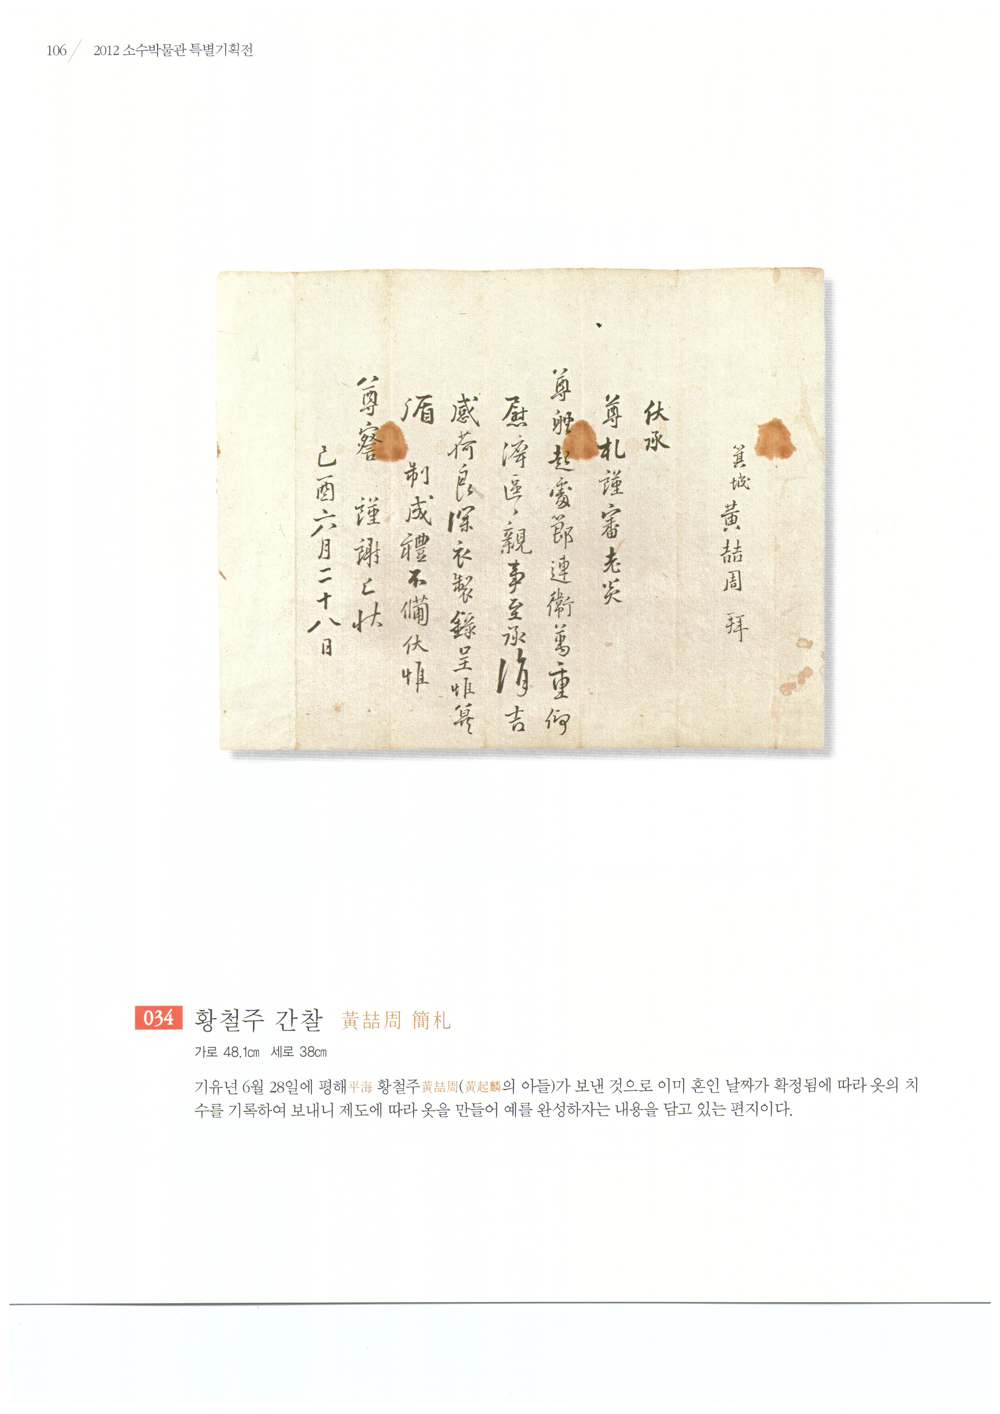 106 / 2012 소수박물관 특별기획전
箕城 黃喆周 拜
伏承
尊札謹審老炎
尊體起處節連衛萬重仰
慰溸區〻親事至承涓吉
感荷良深衣製錄呈惟冀
循 制成禮不備伏惟
尊察 謹謝上狀
己酉六月二十八日
034 황철주 간찰 黃喆周 簡札
가로 48.1㎝ 세로 38㎝
기유년 6월 28일에 평해平海 황철주黃喆周(黃起麟의 아들)가 보낸 것으로 이미 혼인 날짜가 확정됨에 따라 옷의 치
수를 기록하여 보내니 제도에 따라 옷을 만들어 예를 완성하자는 내용을 담고 있는 편지이다.